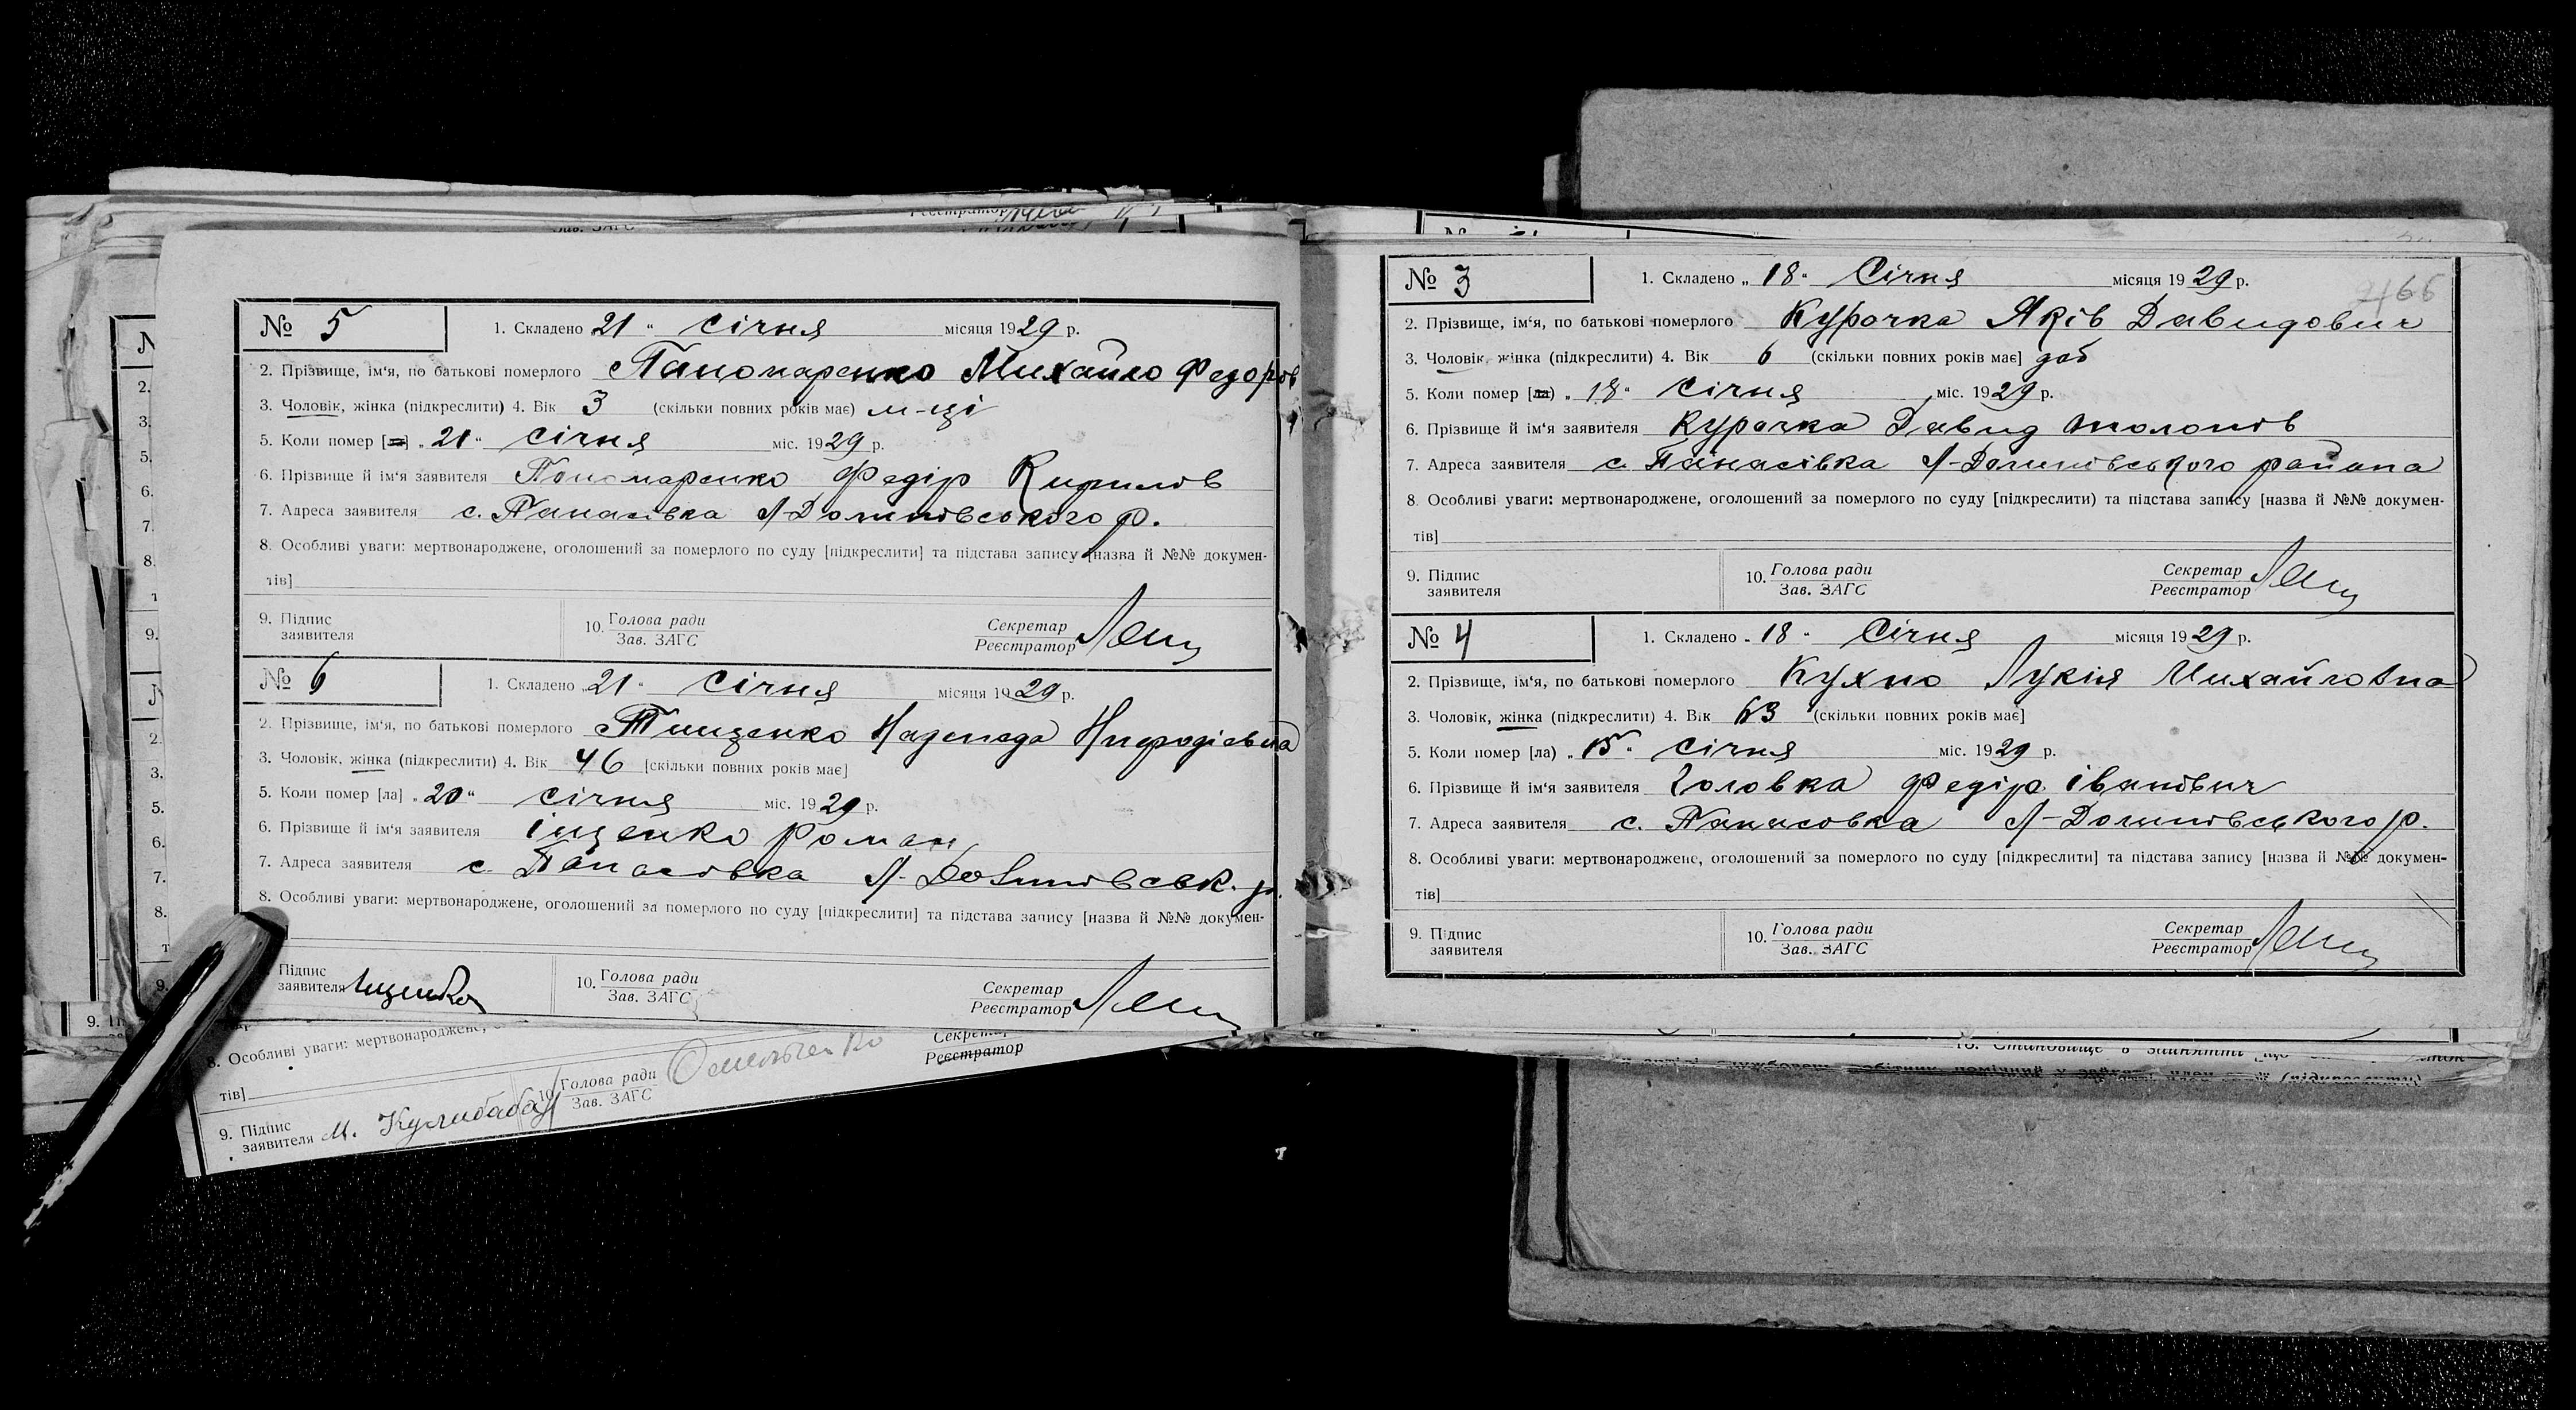 № 5
1. Складено 21 " січня місяця 1929 р.
2. Прізвище, ім'я, по батькові померлого Пономаренко Михайло Федоров
3. Чоловік, жінка (підкреслити) 4. Вік 3 (скільки повних років має) м-ці
5. Коли помер [ла] „ 21 " січня міс. 1929 р.
6. Прізвище й ім'я заявителя Пономаренко Федір Кирилов
7. Адреса заявителя с. Панасівка Л-Долинівського р.
8. Особливі уваги: мертвонароджене, оголошений за померлого по суду [підкреслити] та підстава запису [назва й №№ докумен-
тів]
9. Підпис заявителя
10. Голова ради
Зав. ЗАГС
Секретар
Реєстратор
№ 6
1. Складено „ 21 " січня місяця 1929 р.
2. Прізвище, ім'я, по батькові померлого Тищенко Надежда
3. Чоловік, жінка (підкреслити) 4. Вік 46 [скільки повних років має]
5. Коли помер [ла] „ 20 " січня міс. 1929 р.
6. Прізвище й ім'я заявителя Іщенко Роман
7. Адреса заявителя с. Панасовка Л-Долинівськ. р.
8. Особливі уваги: мертвонароджене, оголошений за померлого по суду [підкреслити] та підстава запису [назва й №№ докумен-
Підпис заявителя Іщенко
10. Голова ради
Зав. ЗАГС
Секретар
Реєстратор
8. Особливі уваги: мертвонароджене,
тів]
9. Підпис заявителя М. Кулибаба
10. Голова ради
Зав. ЗАГС
Омельченко
Секретар
Реєстратор
№ 3
1. Складено „ 18 " Січня місяця 1929 р.
66
2. Прізвище, ім'я, по батькові померлого Курочка Яків Давидович
3. Чоловік, жінка (підкреслити) 4. Вік 6 (скільки повних років має] доб
5. Коли помер [ла) „ 18 " січня міс. 1929 р.
6. Прізвище й ім'я заявителя Курочка Давид
7. Адреса заявителя с. Панасівка Л-Долинівського района
8. Особливі уваги: мертвонароджене, оголошений за померлого по суду [підкреслити) та підстава запису [назва й №№ докумен-
тів]
9. Підпис заявителя
10. Голова ради
Зав. ЗАГС
Секретар
Реєстратор
№ 4
1. Складено „ 18 " Січня місяця 1929 р.
2. Прізвище, ім'я, по батькові померлого Кухно Лукія Михайловна
3. Чоловік, жінка (підкреслити) 4. Вік 63 (скільки повних років має]
5. Коли помер [ла) „ 15 " січня міс. 1929 р.
6. Прізвище й ім'я заявителя Головка Федір Іванович
7. Адреса заявителя с. Панасовка Л-Долинівського р.
8. Особливі уваги: мертвонароджене, оголошений за померлого по суду [підкреслити] та підстава запису [назва й №№ докумен-
тів]
9. Підпис заявителя
10. Голова ради
Зав. ЗАГС
Секретар
Реєстратор